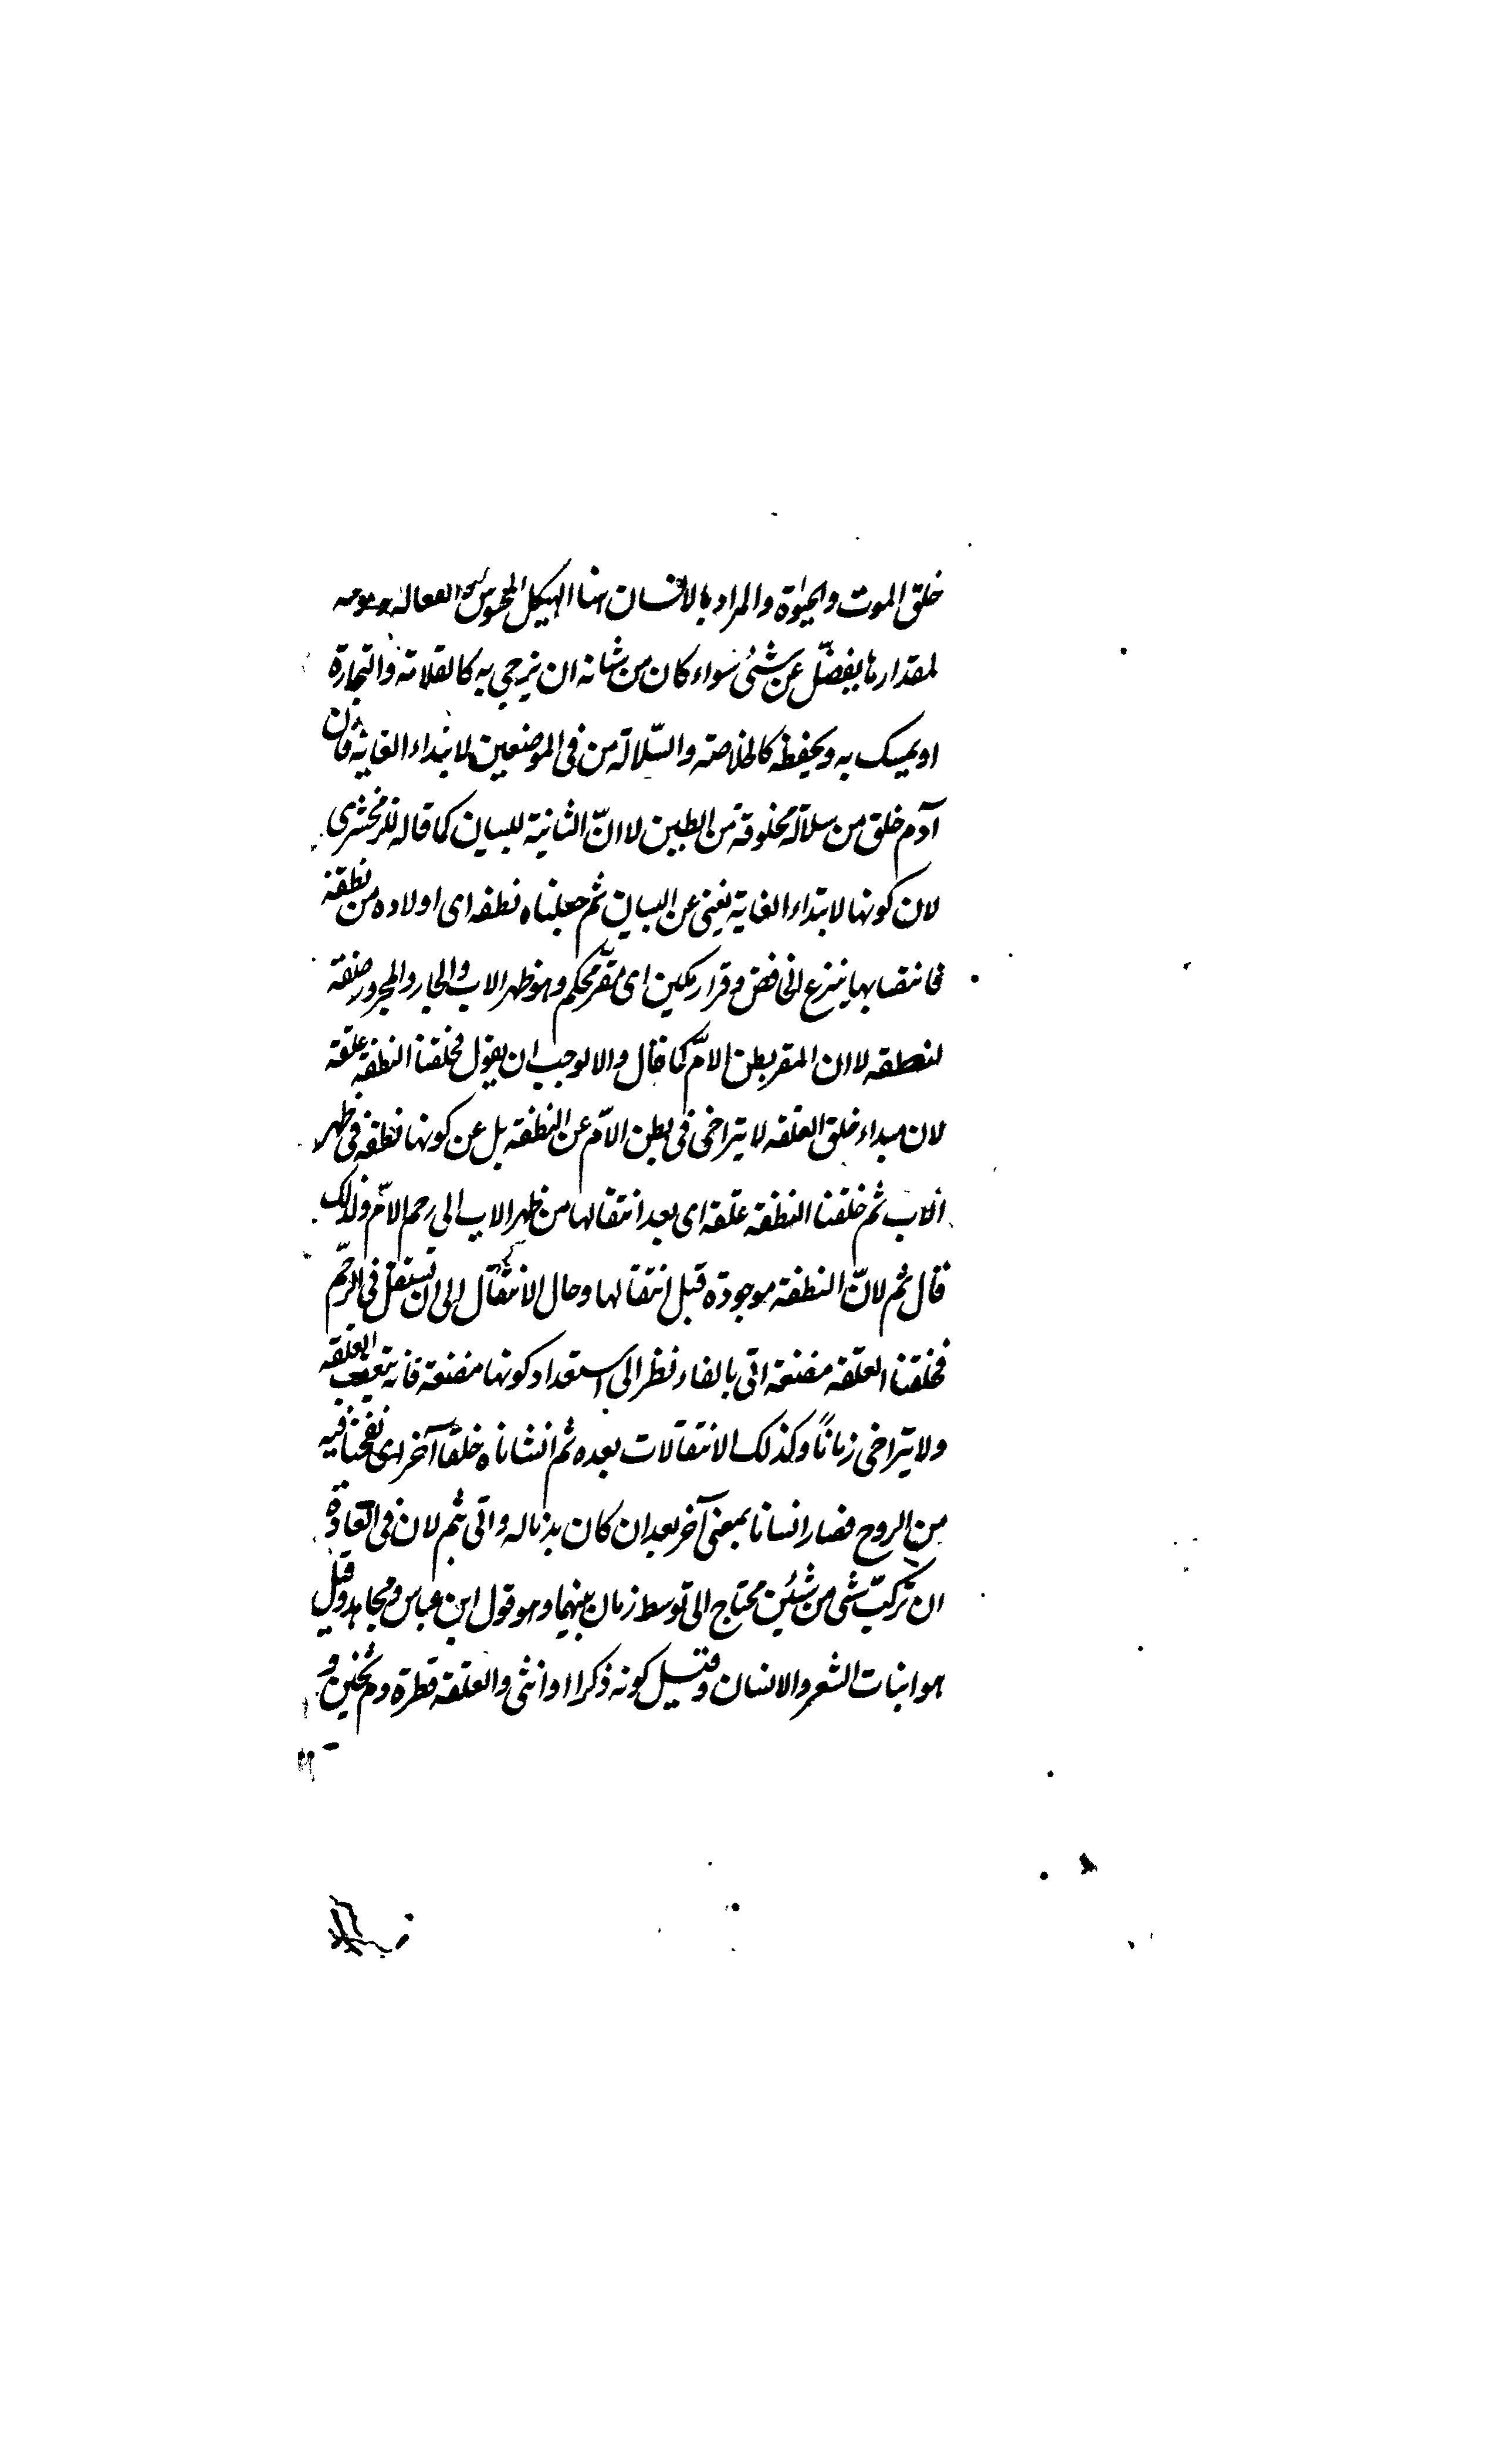 خلق الموت والحيٰوة والمراد بالانسان هنا الهيكل المحسوس الفعالة
لمقدار ما يفضّل عن شئ سواء كان من شانه ان يرجى به كالقلامة والنجارة
او يمسك به ويحفظ كالخلاصة والسّلالة من فى الموضعين لابتداء الغاية فان
آدم خلق من سلالة مخلوقة من الطين لا انّ الثانية للبيان كما قاله الزمخشرى
لان كونها لابتداء الغاية يغنى عن البيان ثم جعلناه نطفه اى اولاده من نطفة
فانتصابها بنزع الخافض وقرار مكين اى مقرّ محكم وهو ظهر الاب والجار والمجرور صفة
لنطفه لا ان المقر بطن الامّ كما قال والا لوجب ان يقول فخلقنا النطفة علقة
لان مبداء خلق العلقه لا يتراخى فى بطن الامّ عن النطفة بل عن كونها نطفة فى ظهر
الاب ثم خلقنا النطفة علقة اى بعد انتقالها من ظهر الاب الى رحم الامّ ولذلك
قال ثم لانّ النطفة موجودة قبل انتقالها وحال الانتقال الى ان تستقل فى الرّحم
فخلقنا العلقة مضغة اتى بالفاء نظر الى استعداد كونها مضغة فانه يتعقب العلقة
ولا يتراخى زماناً وكذلك الانتقالات بعده ثم انشاناه خلقاً آخر اى نفخنا فيه
من الروح فصار انسانا بمعنى آخر بعد ان كان بدنا له واتى بثم لان فى العادة
ان تركّب شى من شيئين محتاج الى توسط زمان بينهما وهو قول ابن عباس ومجاهد وقيل
هو انبات الشعر والانسان وقيل كونه ذكرا او انثى والعلقة قطرة دم ثخين و